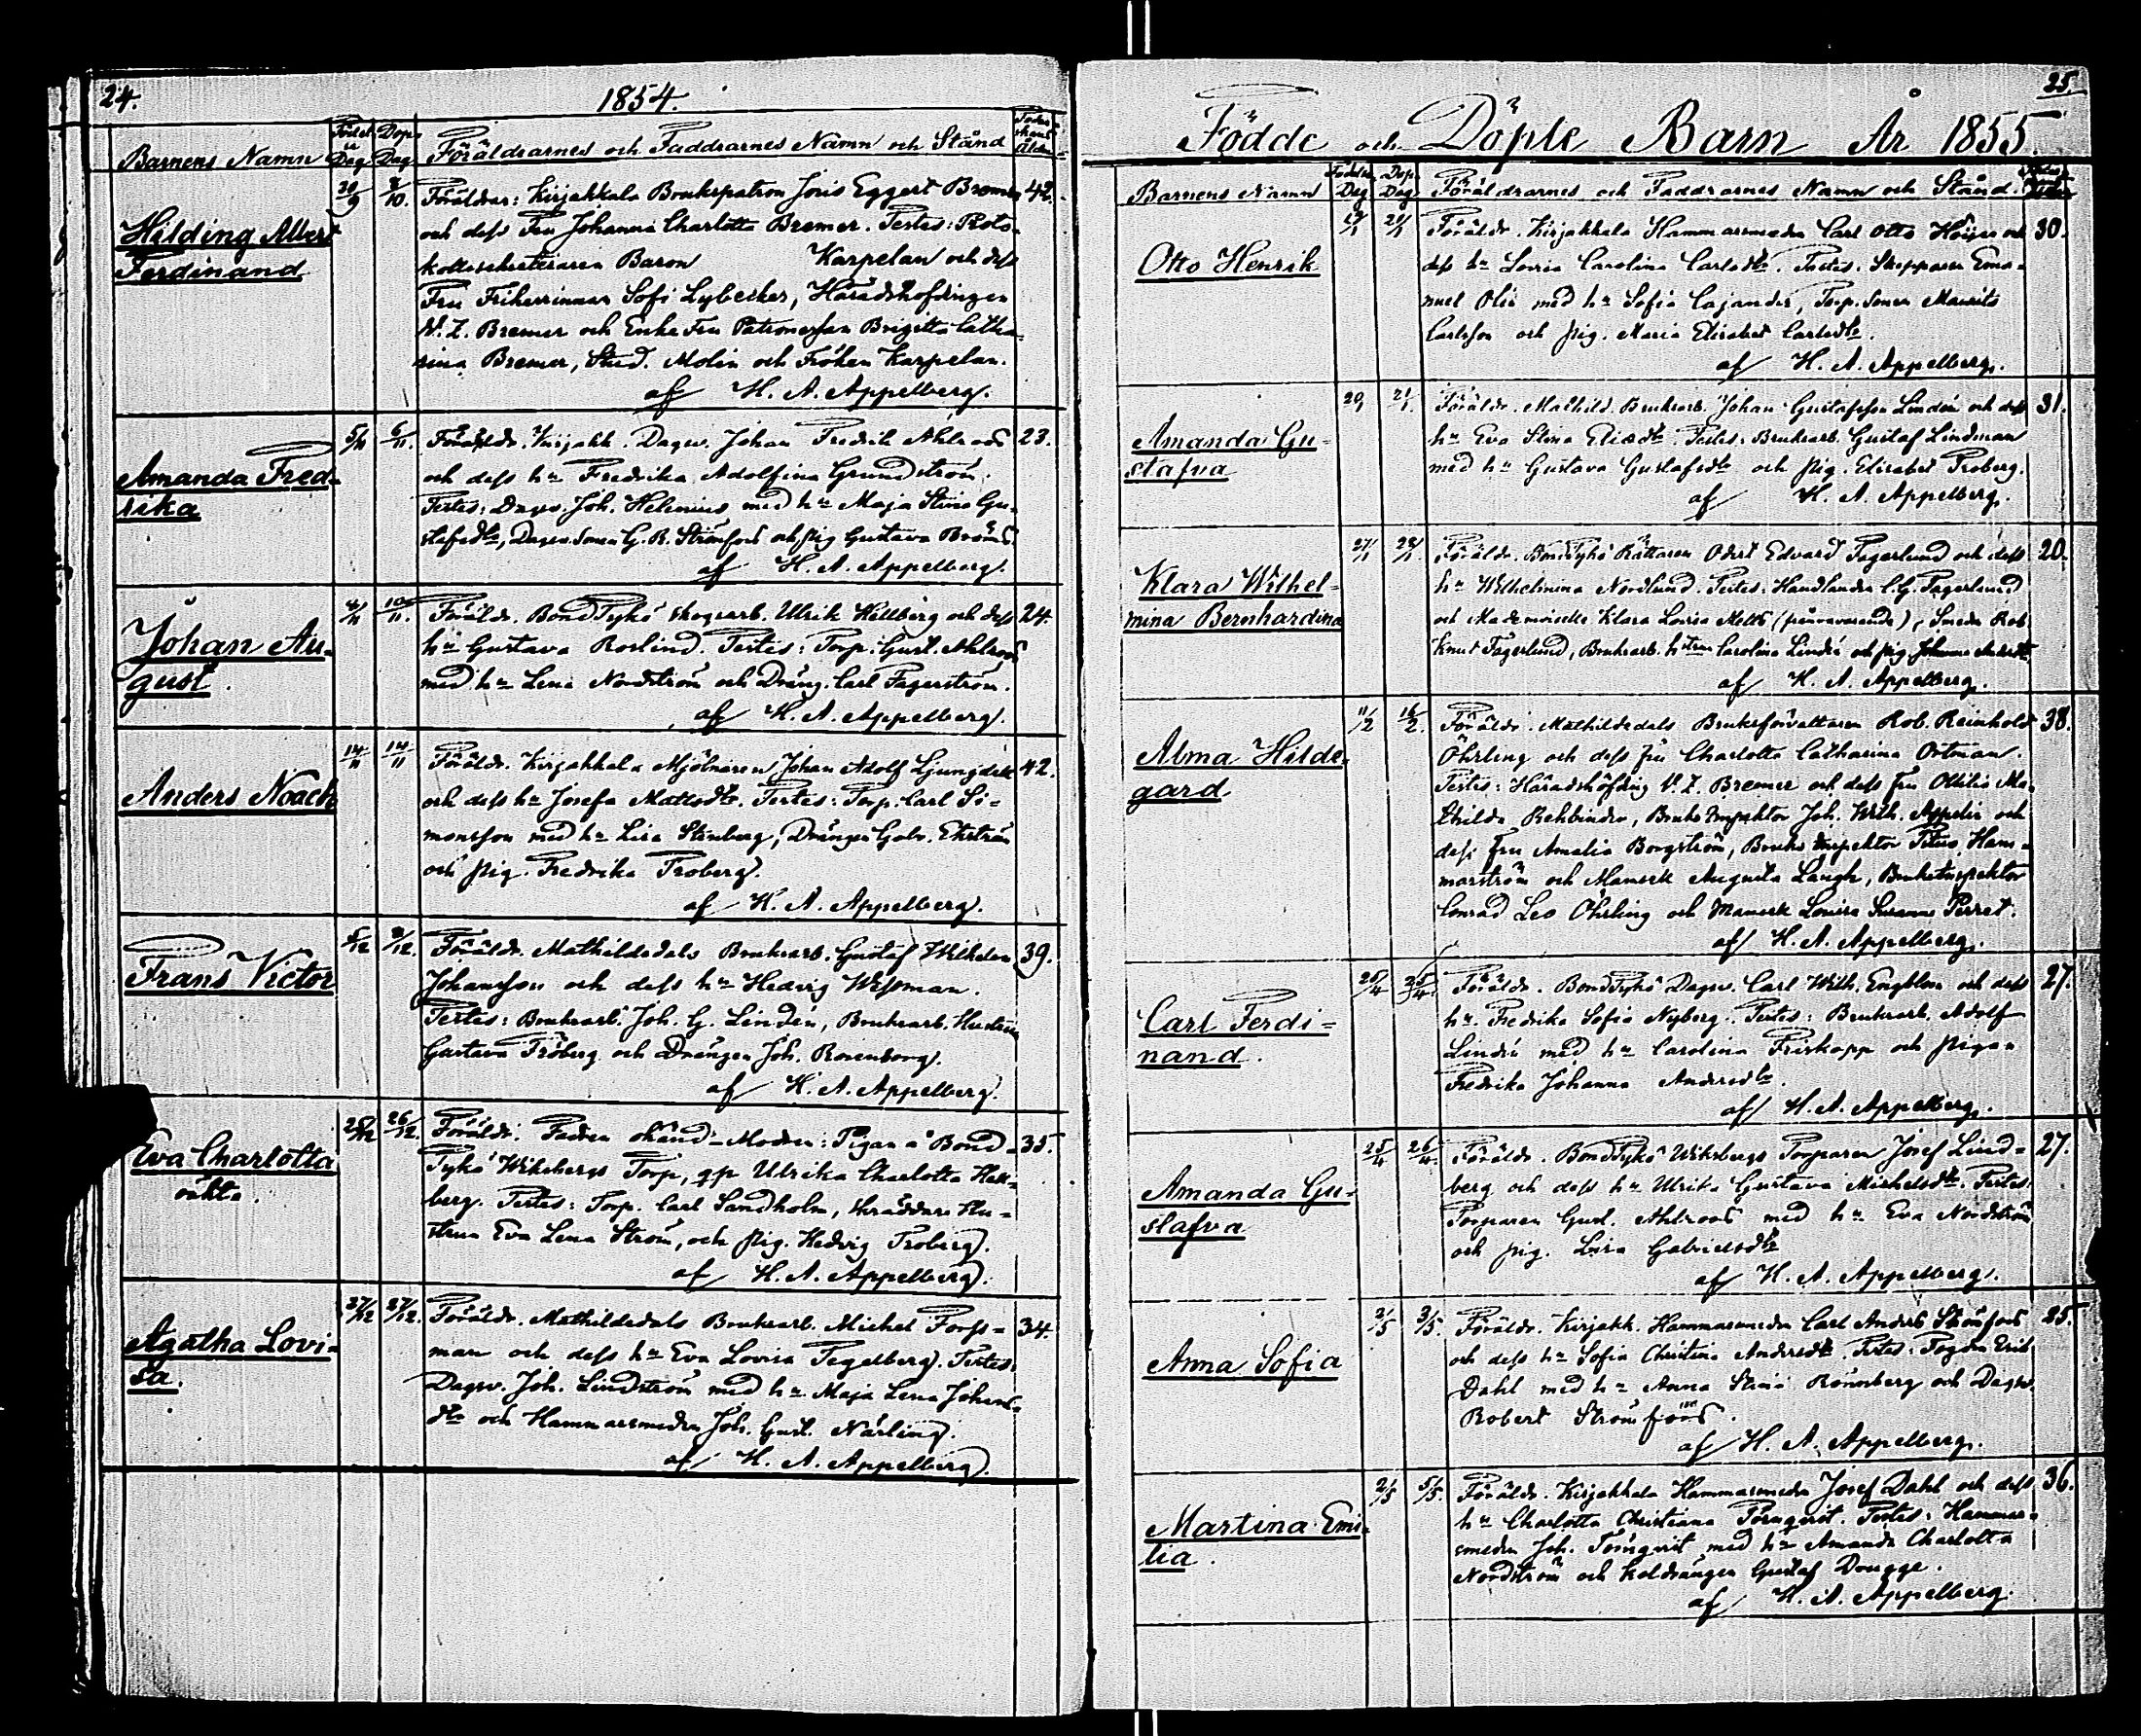 24.
1854.
Barnens Namn
Födel. Dag
Dop. Dag
Föräldrarnes och Faddrarnes Namn och Stånd
Hilding Albert
Ferdinand
20/9
8/10.
Föräldrar: Kirjakkala Brukspatron Joris Eggert Bremer
42.
och dess Fru Johanna Charlotta Bremer. Testes: Proto-
kollssekreteraren Baron Karpelan och dess
Fru Friherrinnan Sofi Lybecker, Häradshöfdingen
W. Z. Bremer och Enke Fru Patronessan Brigitta Catha-
rina Bremer, Stud. Molin och Fröken Karpelan.
af H. A. Appelberg.
Amanda Fred-
rika
5/11
6/11.
Föräldr. Kirjakk. Dagsv. Johan Fredrik Ahlroos
23.
och dess hu Fredrika Adolfina Grundström.
Testes: Dagsv. Joh. Helenius med hu Maja Stina Gu-
stafsdtr, Dagsv. Sonen G. R. Strömfors och pig Gustava Broms.
af H. A. Appelberg.
Johan Au-
gust.
10/11.
Föräldr. BondTykö skogsarb. Ulrik Hellberg och dess
24.
hu Gustava Roslind. Testes: Torp. Gust. Ahlroos
med hu Lena Nordström och Dräng. Carl Fagerström.
af H. A. Appelberg.
Anders Noach
14/11
14/11
Föräldr. Kirjakkala Mjölnaren Johan Adolf Ljungdell
42.
och dess hu Josefa Mattsdtr. Testes: Torp. Carl Si-
monsson med hu Lisa Stenberg, Drängen Gabr. Ekström
och pig. Fredrika Froberg.
af H. A. Appelberg.
Frans Victor
5/12
8/12.
Föräldr. Mathildedals Bruksarb. Gustaf Wilhelm
39.
Johansson och dess hu Hedvig Wessman.
Testes: Bruksarb. Joh. G. Lindén, Bruksarb. Hustrun
Gustava Fröberg och Drängen Joh. Rosenborg.
af H. A. Appelberg.
Eva Charlotta
oäkta.
25/12
26/12.
Föräldr. Fadren okänd - Modren: Pigan å Bond-
35.
Tykö Wiksbergs Torp, qp Ulrika Charlotta Hell-
berg. Testes: Torp. Carl Sandholm, skräddare Hu-
strun Eva Lena Ström, och pig. Hedvig Froberg.
af H. A. Appelberg.
Agatha Lovi-
sa.
27/12
27/12.
Föräldr. Mathildedals Bruksarb. Michel Forss-
34.
man och dess hu Eva Lovisa Tegelberg. Testes:
Dagsv. Joh. Lindström med hu Maja Lena Johans-
dtr och Hammarsmeden Joh. Gust. Närling.
af H. A. Appelberg.
25.
Födde och Döpte Barn År 1855.
Barnens Namn
Födelse Dag
Dop. Dag
Föräldrarnes och Faddrarnes Namn och Stånd.
Otto Henrik
19/1
20/1
Föräldr. Kirjakkala Hammarsmeden Carl Otto Höijer och
30.
dess hu Lovisa Carolina Carlsdtr. Testes: Skepparen Ema-
nuel Olin med hu Sofia Cajander, Torp. Sonen Maurits
Carlsson och pig. Maria Elisabet Carlsdtr.
af H. A. Appelberg.
Amanda Gu-
stafva
20/1
21/1.
Föräldr. Mathild. Bruksarb. Johan Gustafsson Lindén och dess
31.
hu Eva Stina Eliædtr. Testes: Bruksarb. Gustaf Lindman
med hu Gustava Gustafsdtr och pig. Elisabet Froberg.
af H. A. Appelberg.
Klara Wilhel-
mina Bernhardina
27/1
28/1.
Föräldr. BondTykö Rättaren Odert Edvard Fagerlund och dess
20.
hu Wilhelmina Nordlund. Testes: Handlanden C. G. Fagerlund
och Mademoiselle Klara Lovisa Mells (frånvarande), Smeden Rob.
Knut Fagerlund, Bruksarb. hstrun Carolina Lindén och pig. Johanna Andersdtr
af H. A. Appelberg.
Alma Hilde-
gard
11/2
16/2.
Föräldr. Mathildedals Bruksförvaltaren Rob. Reinhold
38.
Öhrling och dess fru Charlotta Catharina Ortman.
Testes: Häradshöfding W. Z. Bremer och dess Fru Ottilia Ma-
thilda Rehbinder, Bruks Inspektor Joh. Wilh. Appelin och
dess Fru Amalia Borgström, Bruks Inspektor Titus Ham-
marström och Mamsell Augusta Laugh, Bruksinspektor
Conrad Leo Öhrling och Mamsell Lovisa Susanna Perret.
af H. A. Appelberg.
Carl Ferdi-
nand.
20/4
25/4.
Föräldr. BondTykö Dagsv. Carl Wilh. Engblom och dess
27.
hu. Fredrika Sofia Nyberg. Testes: Bruksarb. Adolf
Lindén med hu Carolina Friskopp och pigan
Fredrika Johanna Andersdtr.
af H. A. Appelberg.
Amanda Gu-
stafva
25/4
26/4.
Föräldr. BondTykö Wiksbergs Torparen Josef Lind-
27.
berg och dess hu Ulrika Gustava Michelsdtr. Testes:
Torparen Gust. Ahlroos med hu Eva Nordström
och pig. Lisa Gabrielsdtr
af H. A. Appelberg.
Anna Sofia
2/5
3/5.
Föräldr. Kirjakk. Hammarsmeden Carl Anders Strömfors
25.
och dess hu Sofia Christina Andersdtr. Testes: Fogden Erik
Dahl med hu Anna Stina Rönnberg och Dagsv.
Robert Strömfors.
af H. A. Appelberg.
Martina Emi-
lia.
2/5
5/5.
Föräldr. Kirjakkala Hammarsmeden Josef Dahl och dess
36.
hu Charlotta Christiana Törnqvist. Testes: Hammar-
smeden Joh. Törnqvist med hu Amanda Charlotta
Nordström och Koldrängen Gustaf Dougge.
af H. A. Appelberg.